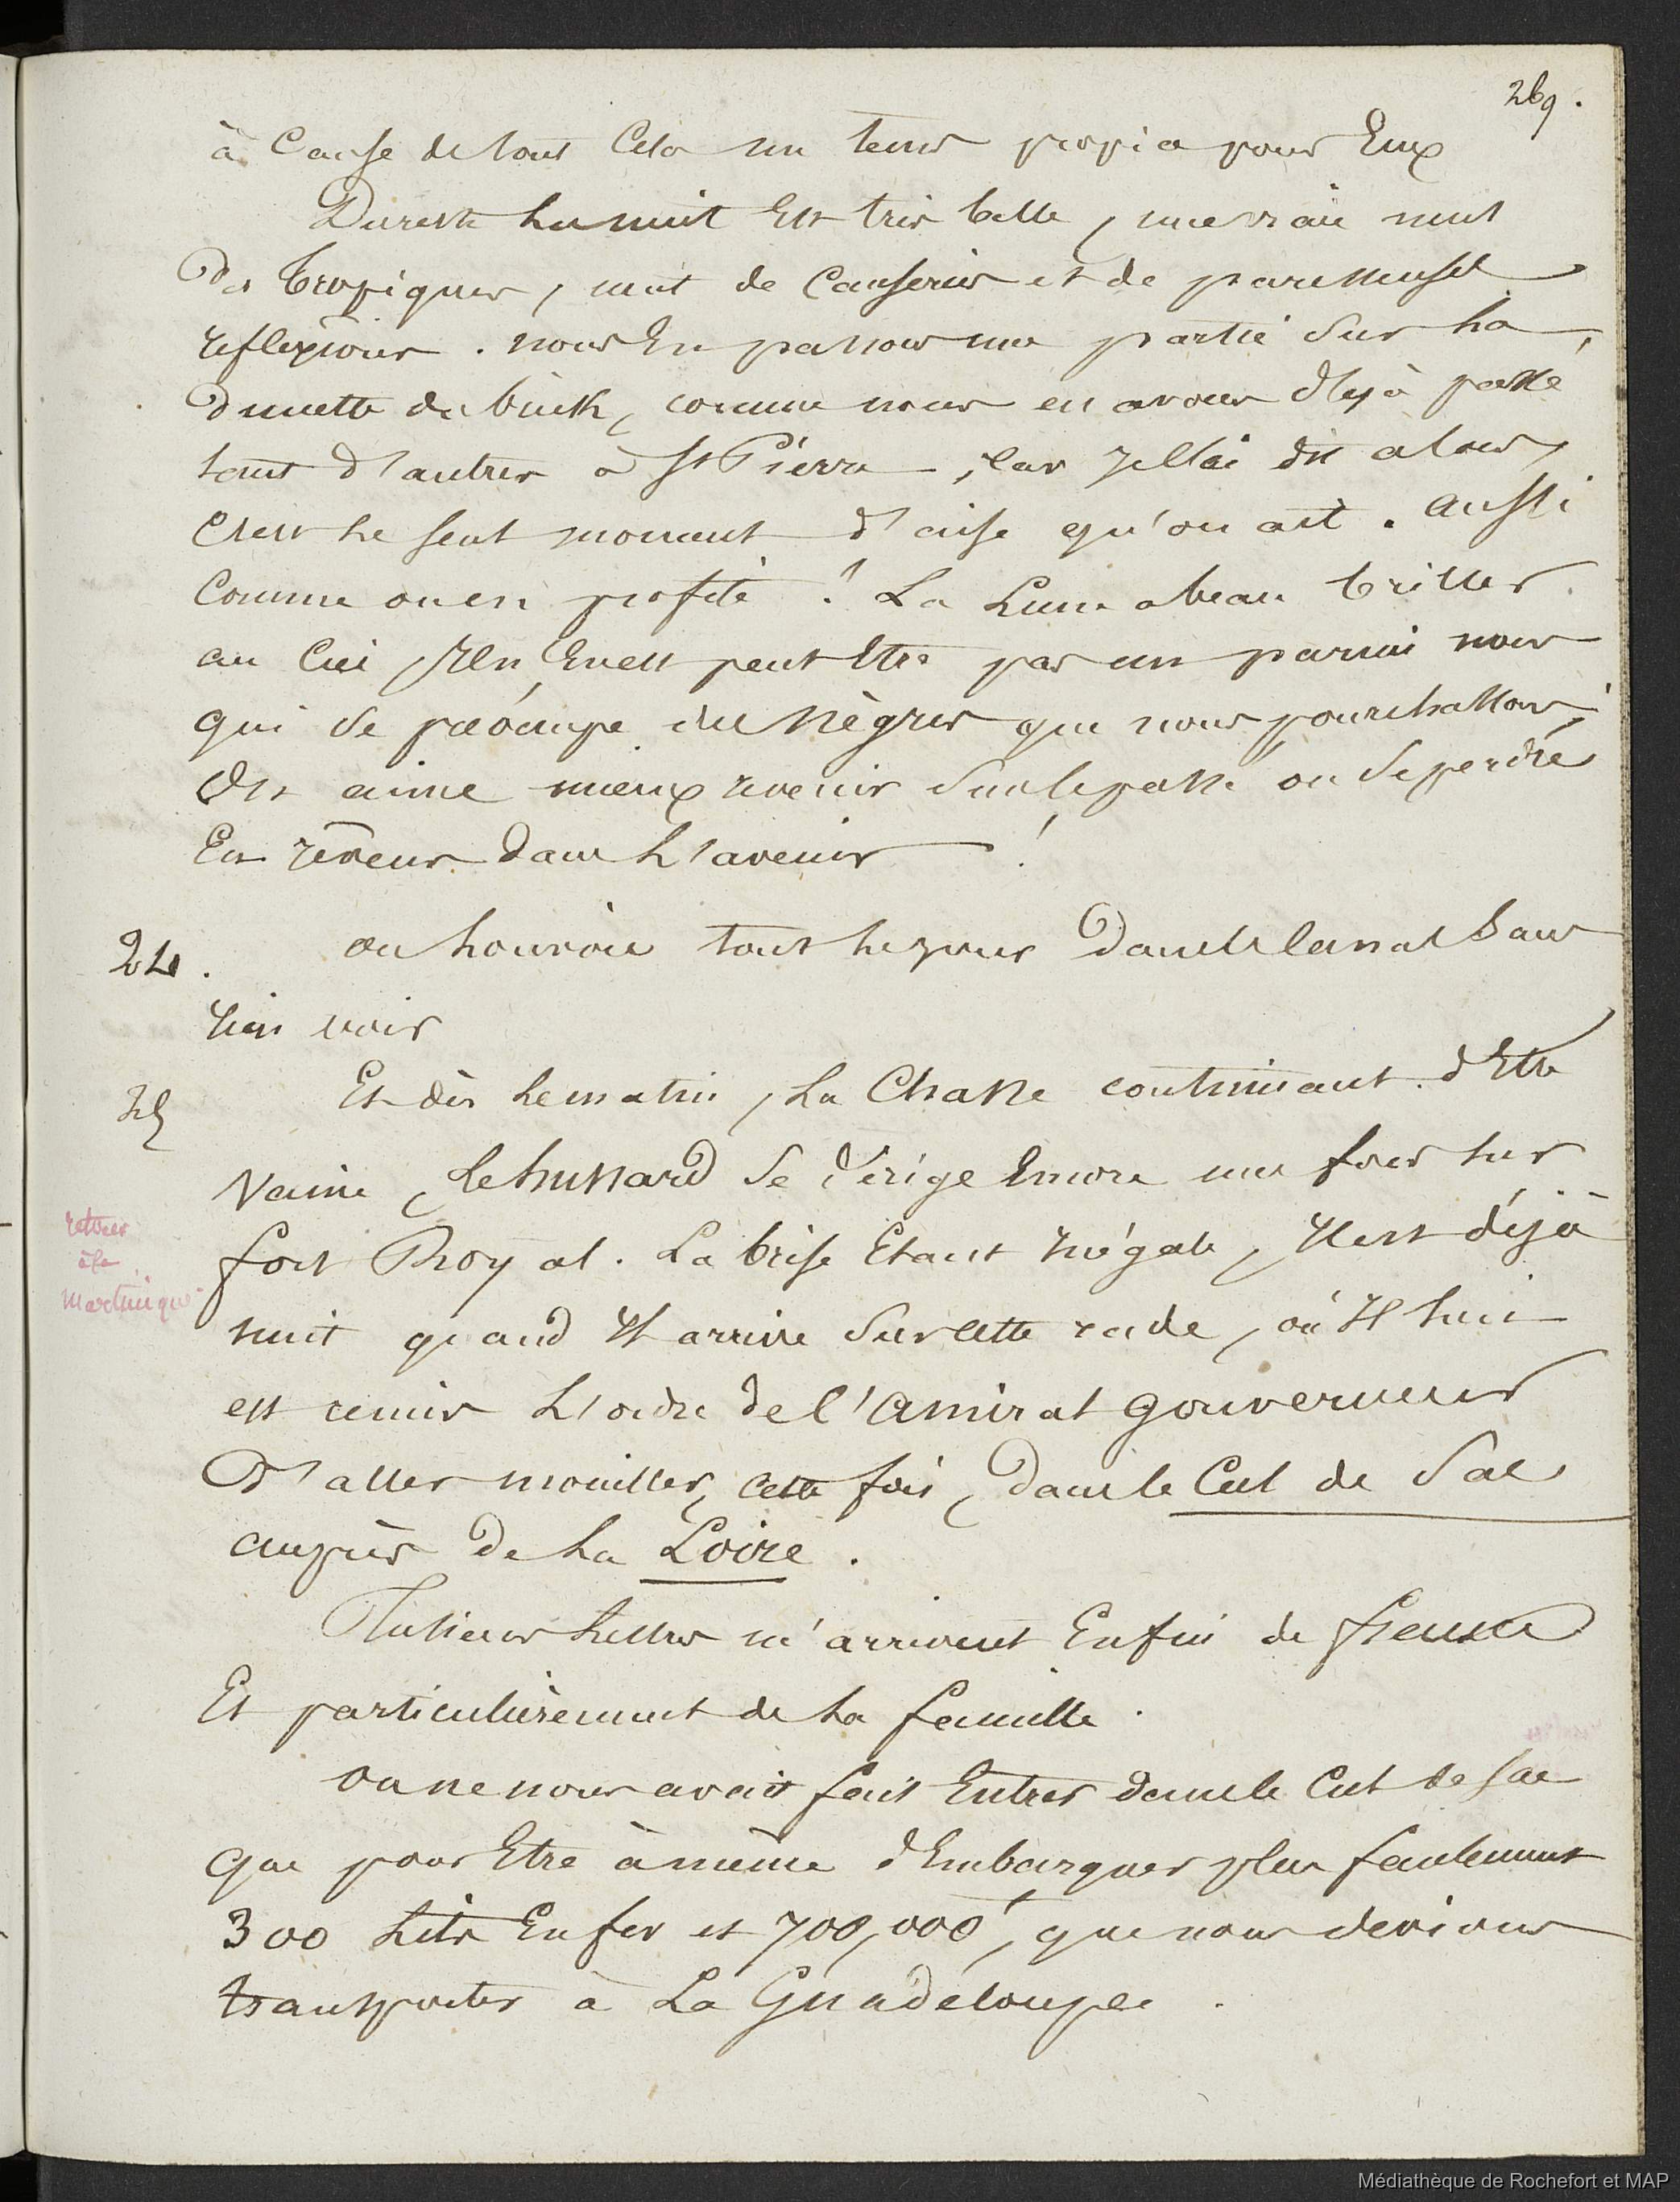 269.
à Cause de tout Cela un tems propice pour Eux
Dureste La nuit Est très belle, une vraie nuit
Des tropiques, nuit de Causeries et de paresseuses
reflexions. nous En passons une partie Sur La
Dunette du brick, comme nous en avons déjà passé
tant d'autres à St Pierre, car Je l'ai dit alors,
C'est Le seul moment d'aise qu'on ait. Aussi
Comme on en profite! La Lune a beau briller
au Ciel, Il n'En est peut Etre pas un parmi nous
qui se préoccupe des Nègres que nous pourchassons;
On aime mieux revenir Sur le passé ou Se perdre
En rêveur dans L'avenir!
24. on Louvoie tout Le jour Dans le canal Sans
rien voir
25 Et dès Le matin, La Chasse continuant d'Etre
Vaine, Le hussard Se dirige Encore une fois sur
retour
à la
Martinique
fort Royal. La brise Etant inégale, Il est déjà
nuit quand Il arrive Sur cette rade, où Il Lui
est remis L'ordre de l'Amiral Gouverneur
D'aller mouiller, cette fois, Dans le Cul de Sac
auprès De La Loire.
Plusieurs Lettres m'arrivent Enfin de france
Et particulièrement de La famille.
On ne nous avait fait Entrer dans le Cul de Sac
que pour Etre à même d'Embarquer plus facilement
300 Lits En fer et 700,000f, que nous devions
transporter à La Guadeloupe.
Médiathèque de Rochefort et MAP